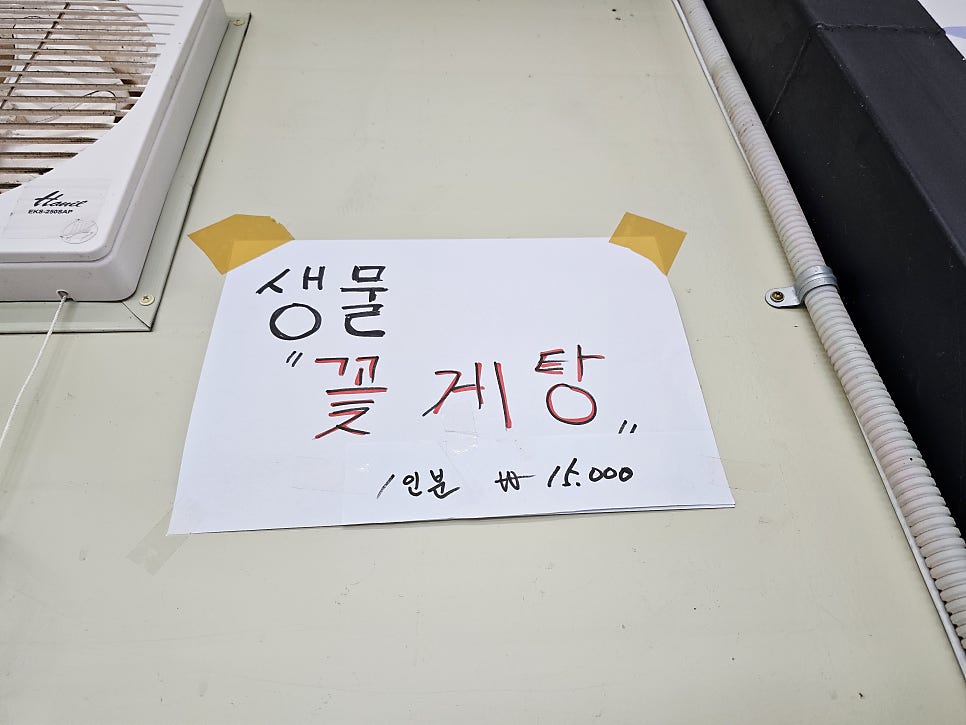 Hanil
EKS-250SAP
생물
"꽃게탕"
1인분 ₩ 15.000